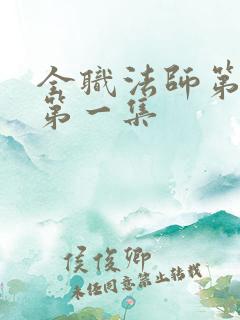 全职法师第
第一集
侯俊卿
未经同意禁止转载